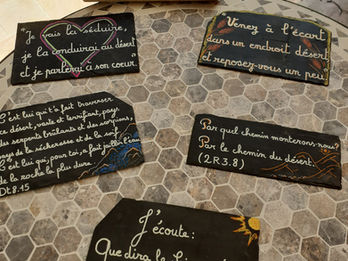 "Je vais la séduire,
je la conduirai au désert
et je parlerai à son coeur.
"Venez à l'écart
dans un endroit désert
et reposez-vous un peu."
C'est lui qui t'a fait traverser
ce désert, vaste et terrifiant, pays
des serpents brûlants et des scorpions,
pays de la sécheresse et de la soif.
C'est lui qui, pour toi, a fait jaillir l'eau
de la roche la plus dure.
Dt 8.15
Par quel chemin monterons-nous?
Par le chemin du désert.
(2.R 3.8)
J'écoute:
Que dira le